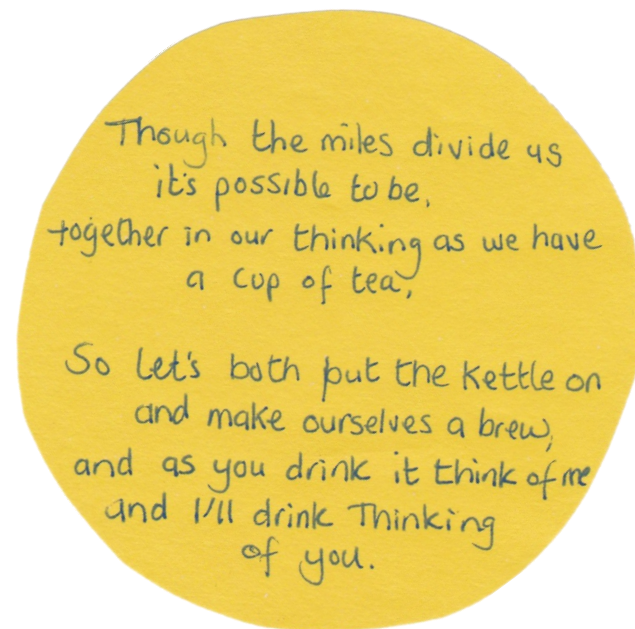 Though the miles divide us
it's possible to be,
together in our thinking as we have
a cup of tea,
So let's both put the kettle on
and make ourselves a brew,
and as you drink it think of me
and I'll drink Thinking
of you.